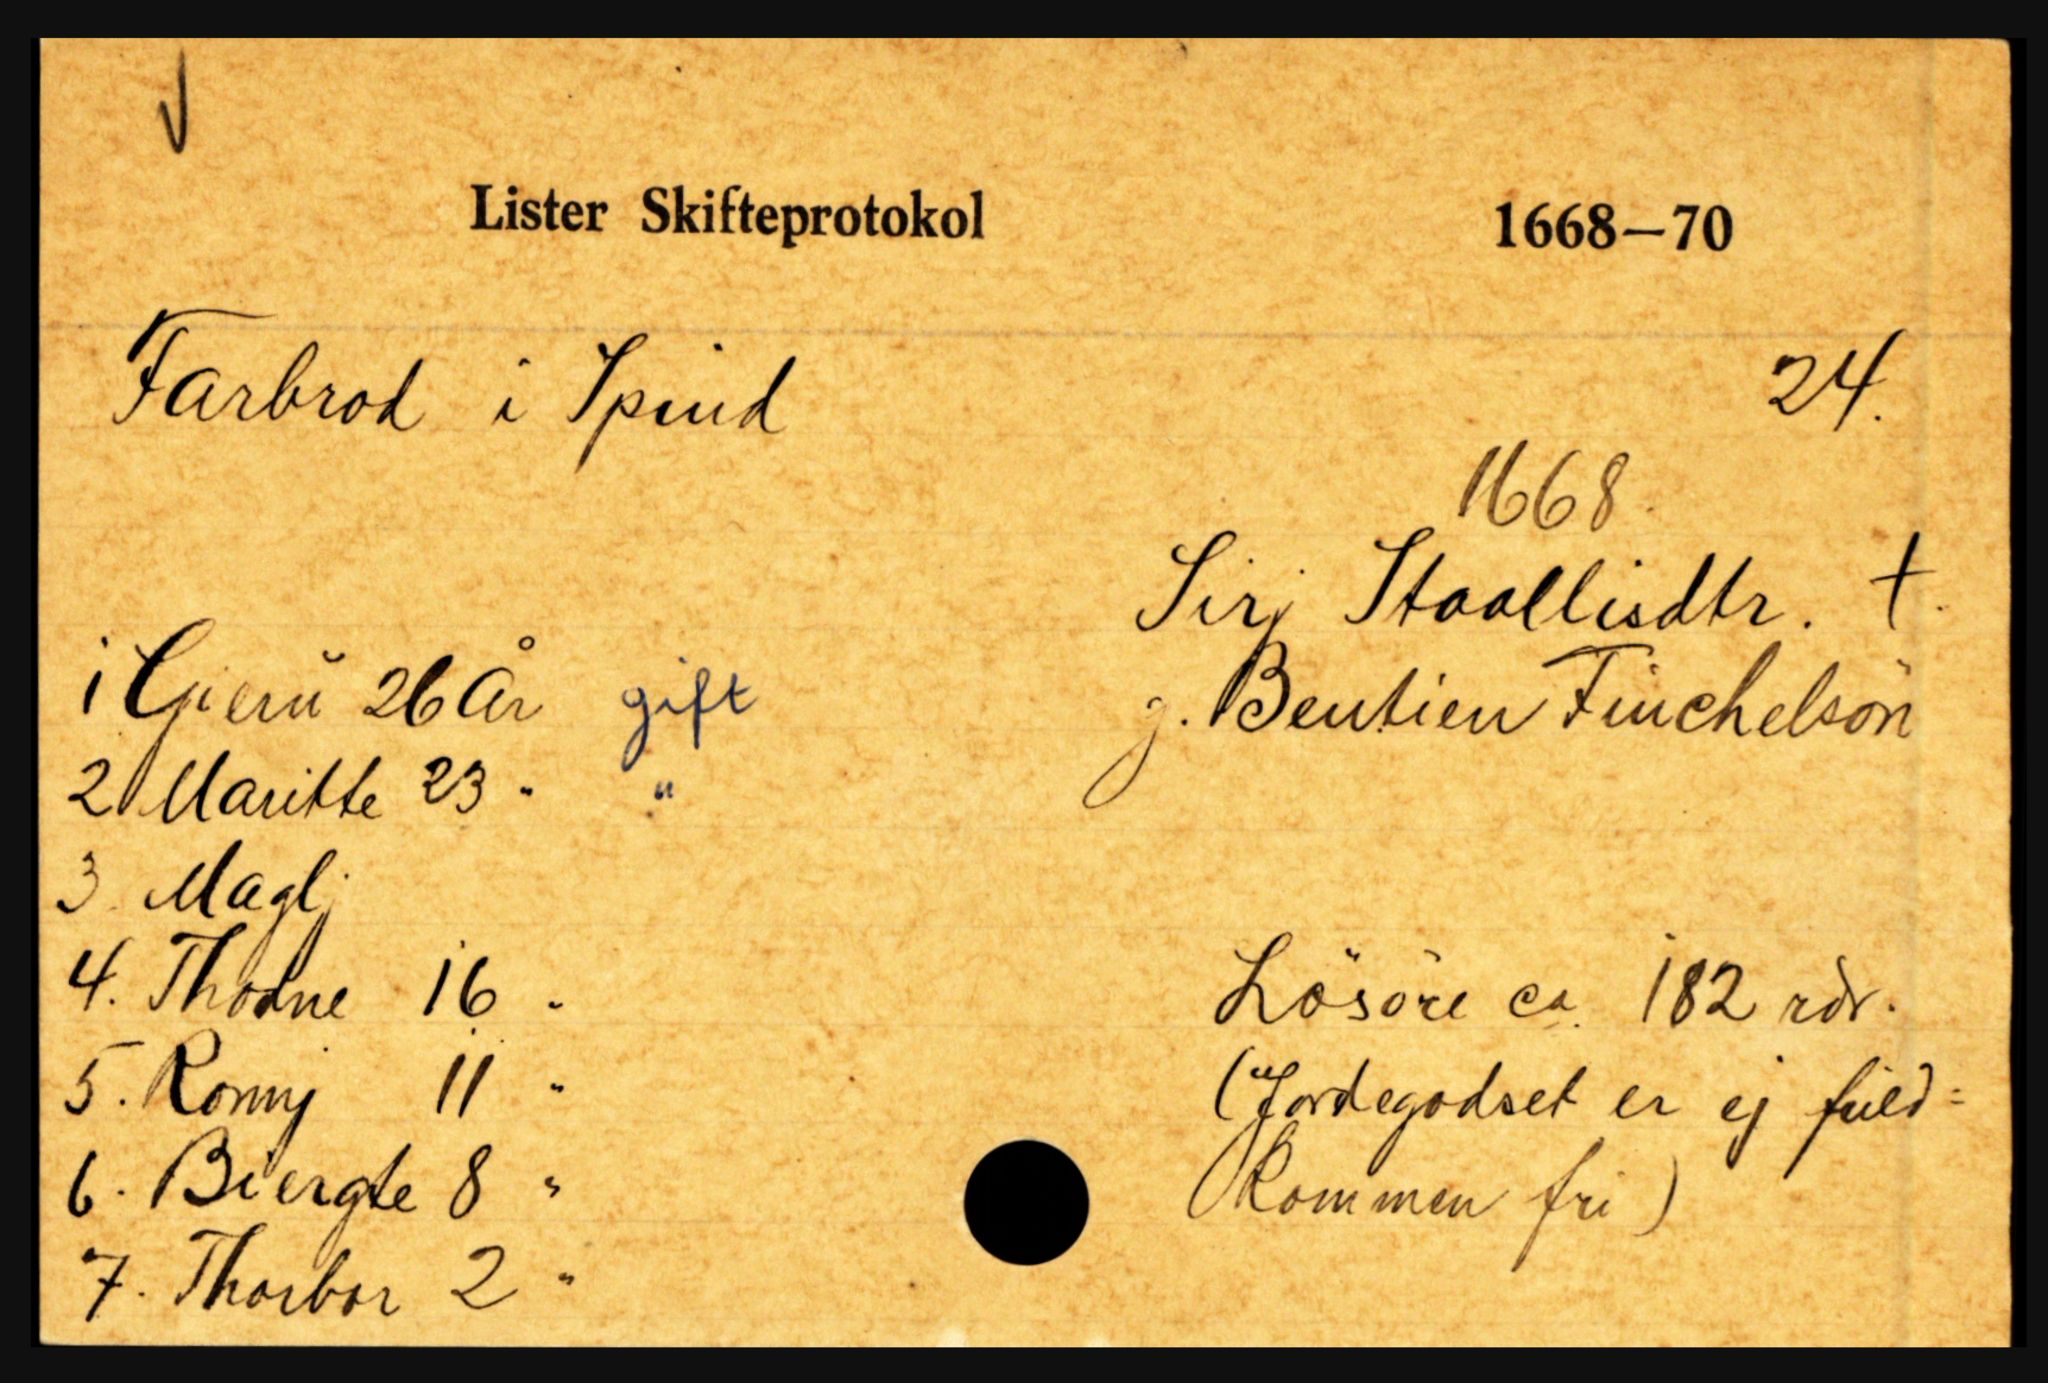 Lister Skifteprotokol 1668–70
Farbrod i Spind 24.
1668.
Sirj Staallisdtr. †.
g. Bentien Finchelsön
1 Gierů 26 År gift
2 Maritte 23 " "
3 Maglj
4. Thodne 16 "
5. Ronnj 11 "
6. Biergte 8 "
7. Thorbor 2 "
Lösöre ca. 182 rdr.
(Jordegodset er ej fuld=
kommen fri)